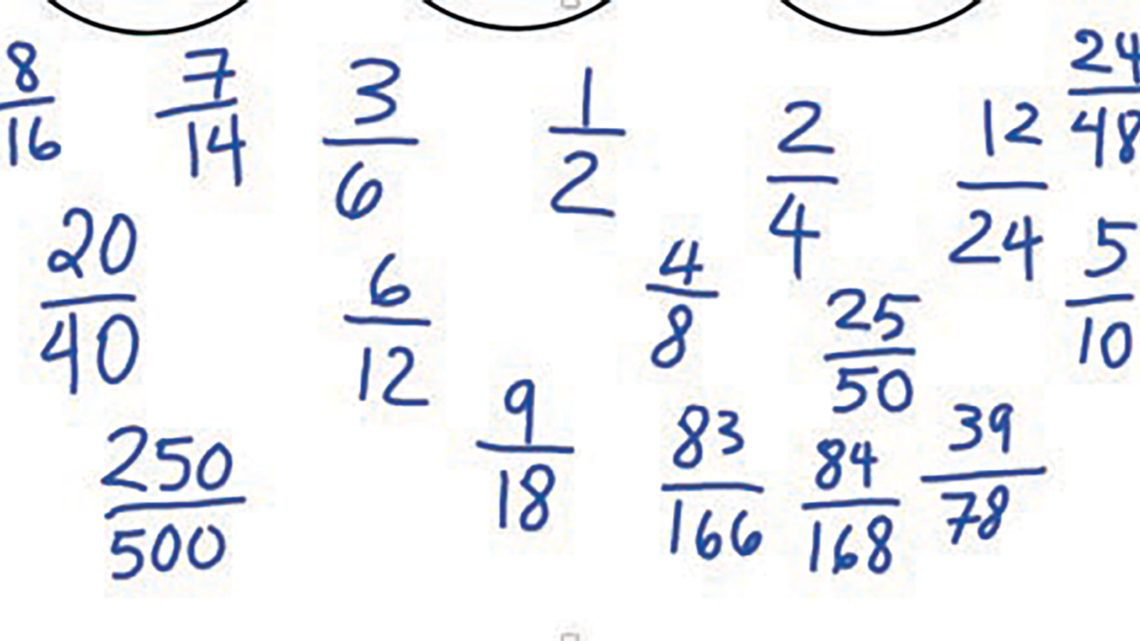 8/16 7/14 3/6 1/2 2/4 12/24 24/48
20/40 6/12 4/8 25/50 5/10
250/500 9/18 83/166 84/168 39/78